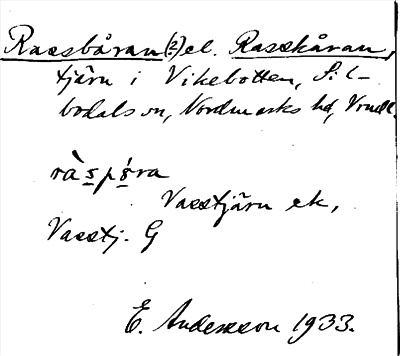 Rassbåran (?) el. Rasskåran,
tjärn i Vikebotten, S. l-
bodals sn, Nordmarks hd, Vrml.
ràspǻra
Vasstjärn ek,
Vasstj. G
E. Andersson 1933.